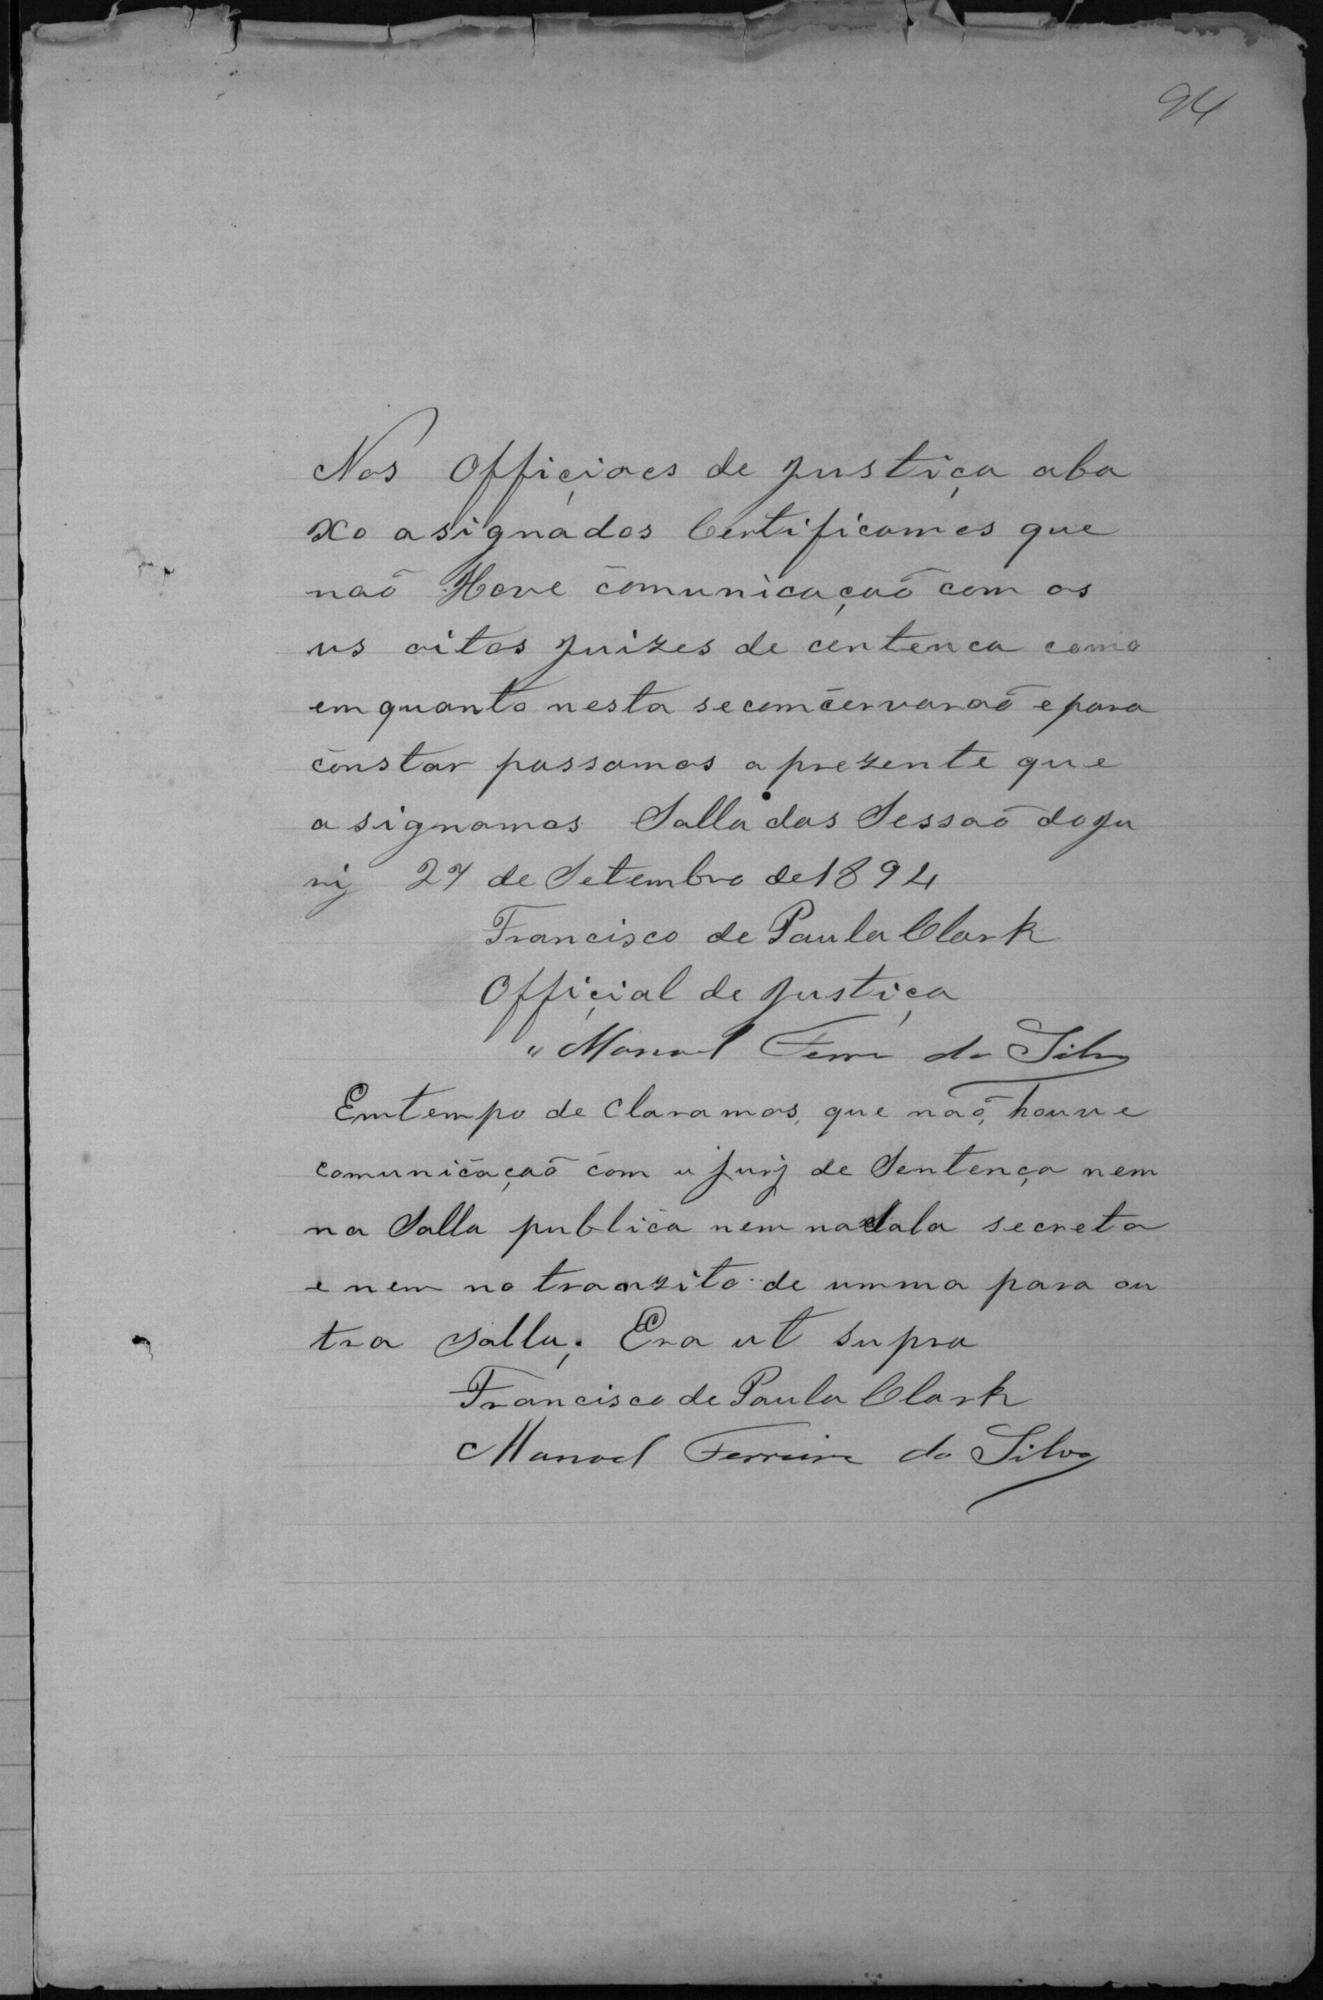 94
Nos Officiaes de justiça aba
xo asignados Certificamos que
naõ Hove comunicaçaõ com os
us oitos juizes de centenca como
emquanto nesta secomcervaraõ epara
constar passamos aprezente que
asignamos Salla das Sessaõ doju
rij 27 de Setembro de 1894
Francisco de Paula Clark
Official de justiça
" Manoel Ferra da Silva
Emtempo de claramos, que naõ, houve
comunicaçaõ com u jurij de Sentença nem
na Salla publica nem na Sala secreta
e nem no tranzito de umma para ou
tra salla; Era ut supra
Francisco de Paula Clark
Manoel Ferreira da Silva